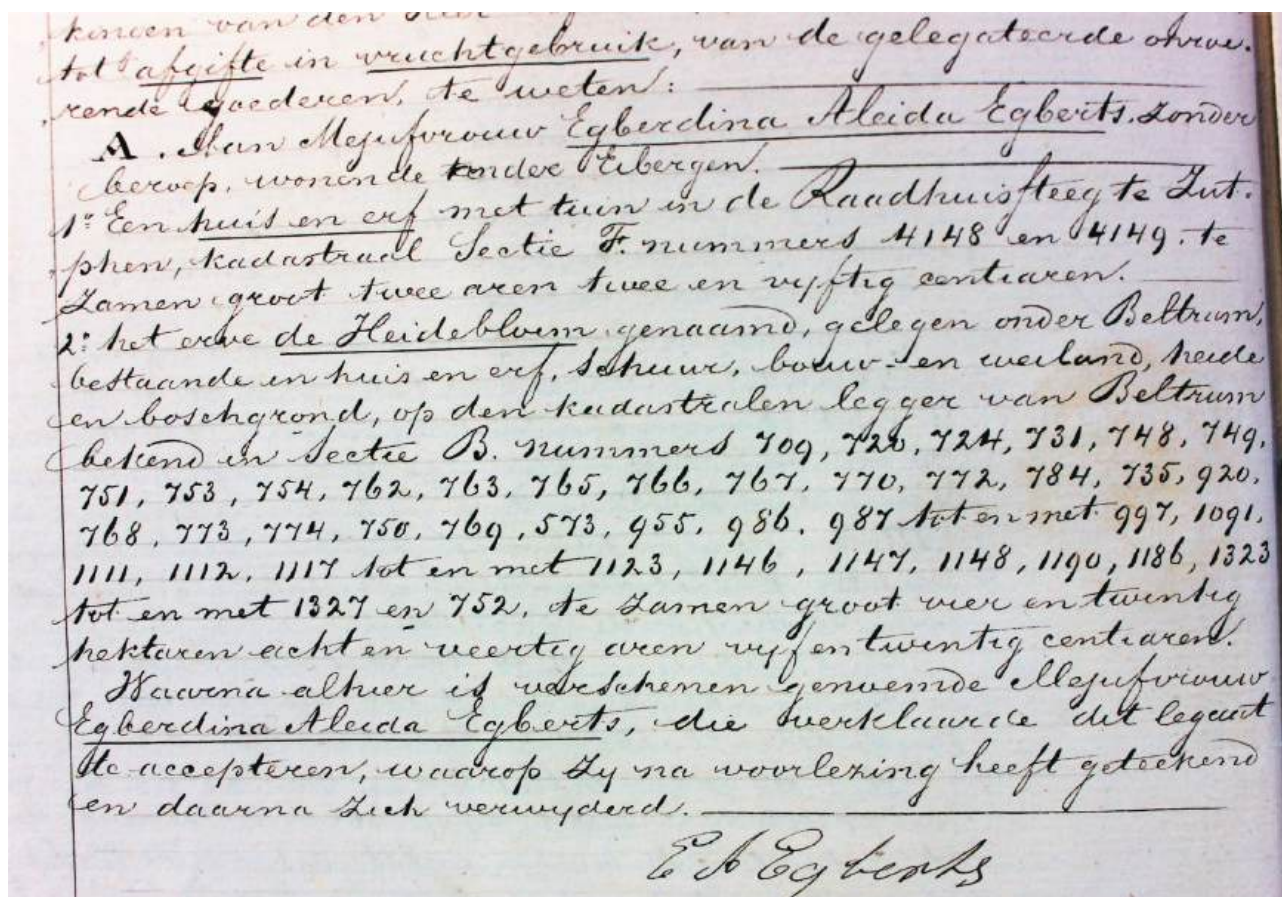 kinden van den Heer
tot afgifte in vruchtgebruik, van de gelegateerde onroe.
rende goederen, te weten:
A. Aan Mejufvrouw Egberdina Aleida Egberts, zonder
beroep, wonende onder Eibergen.
1º Een huis en erf met tuin in de Raadhuissteeg te Zut.
phen, kadastraal Sectie F. nummers 4148 en 4149. te
zamen groot twee aren twee en vyftig centiaren.
2º het erve de Heidebloem genaamd, gelegen onder Beltrum,
bestaande in huis en erf, schuur, bouw- en weiland, heide
en boschgrond, op den kadastralen legger van Beltrum
bekend in Sectie B. nummers 709, 720, 724, 731, 748, 749,
751, 753, 754, 762, 763, 765, 766, 767, 770, 772, 784, 735, 920,
768, 773, 774, 750, 769, 573, 955, 986, 987 tot en met 997, 1091,
1111, 1112, 1117 tot en met 1123, 1146, 1147, 1148, 1190, 1186, 1323
tot en met 1327 en 752, te zamen groot vier en twintig
hektaren acht en veertig aren vyf en twintig centiaren.
Waarna alhier is verschenen genoemde Mejufvrouw
Egberdina Aleida Egberts, die verklaarde dit legaat
te accepteren, waarop zy na voorlezing heeft geteekend
en daarna zich verwyderd.
E A Egberts